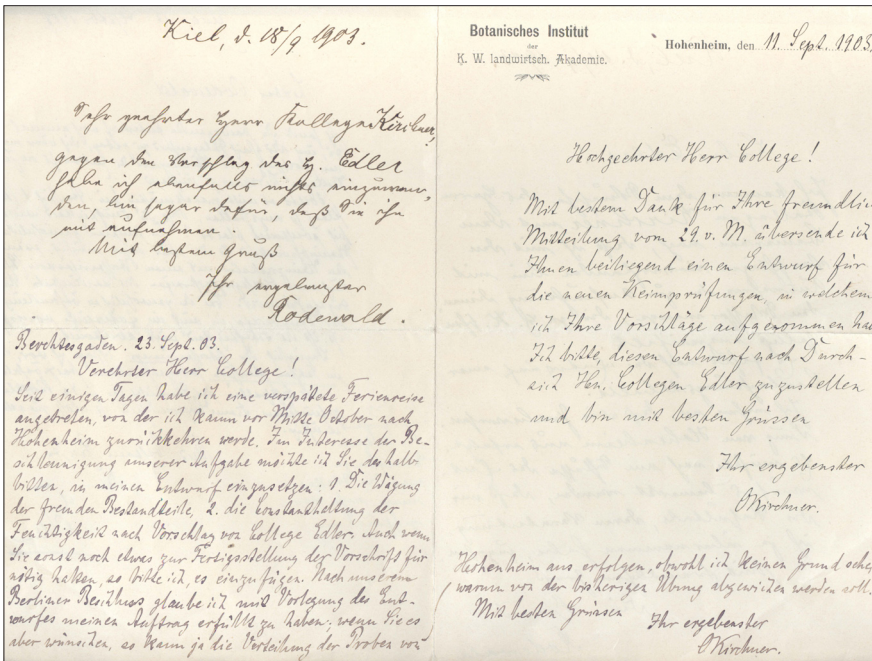 Kiel, d. 18/9 1903.
Sehr geehrter Herr Kollege Kirchner,
gegen den Vorschlag des H. Edler
habe ich ebenfalls nichts einzuwen-
den, bin sogar dafür, daß Sie ihn
mit aufnehmen.
Mit bestem Gruß
Ihr ergebenster
Rodewald.
Berchtesgaden. 23. Sept. 03.
Verehrter Herr College!
Seit einigen Tagen habe ich eine verspätete Ferienreise
angetreten, von der ich kaum vor Mitte October nach
Hohenheim zurückkehren werde. Im Interesse der Be-
schleunigung unserer Aufgabe möchte ich Sie deshalb
bitten, in meinen Entwurf einzusetzen: 1. Die Wägung
der fremden Bestandteile, 2. die Constanthaltung der
Feuchtigkeit nach Vorschlag von College Edler. Auch wenn
Sie sonst noch etwas zur Fertigstellung der Vorschrift für
nötig halten, so bitte ich, es einzufügen. Nach unserem
Berliner Beschluss glaube ich mit Vorlegung des Ent-
wurfes meinen Auftrag erfüllt zu haben; wenn Sie es
aber wünschen, so kann ja die Verteilung der Proben von
Botanisches Institut
der
K. W. landwirtsch. Akademie.
Hohenheim, den 11. Sept. 1903.
Hochgeehrter Herr College!
Mit bestem Dank für Ihre freundlic
Mitteilung vom 29. v. M. übersende ich
Ihnen beiliegend einen Entwurf für
die neuen Keimprüfungen, in welchem
ich Ihre Vorschläge aufgenommen ha
Ich bitte, diesen Entwurf nach Durch-
sicht Hn. Collegen Edler zuzustellen
und bin mit besten Grüssen
Ihr ergebenster
OKirchner.
Hohenheim aus erfolgen, obwohl ich keinen Grund sehe,
warum von der bisherigen Übung abgewichen werden soll.
Mit besten Grüssen
Ihr ergebenster
OKirchner.